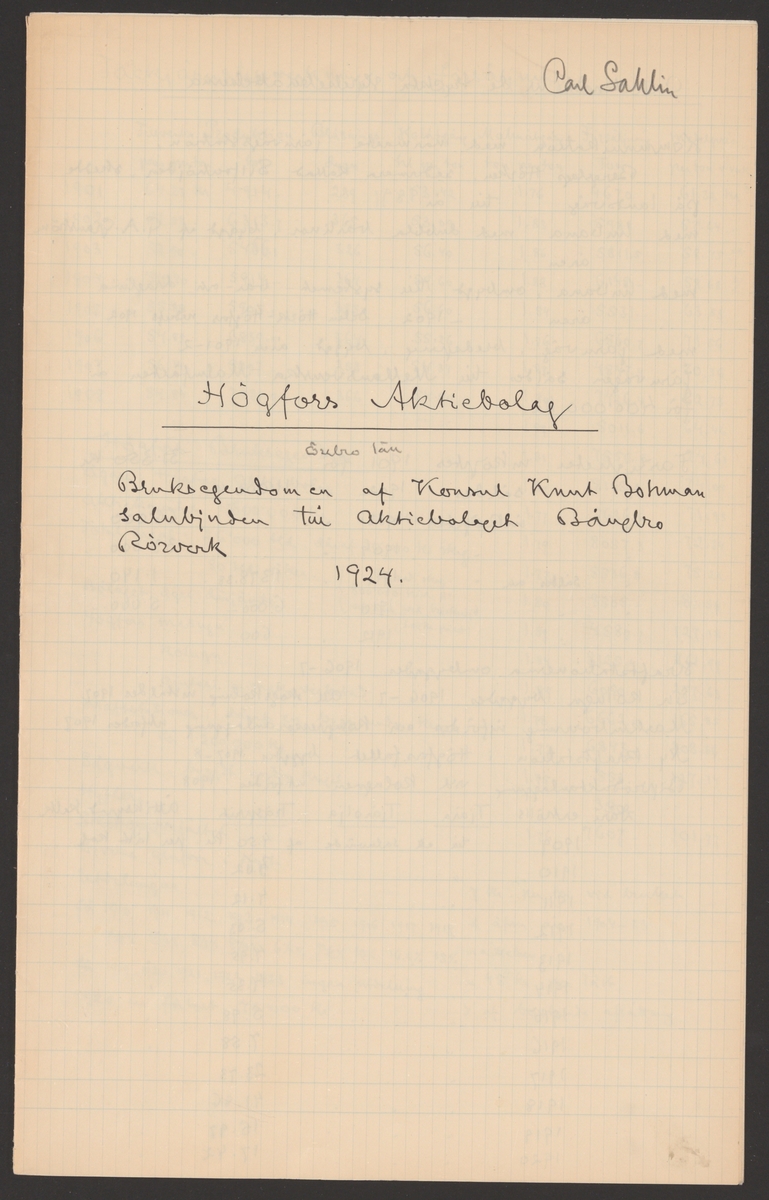 Carl Sahlin
Högfors Aktiebolag
Örebro län
Bruksegendomen af Konsul Knut Bohman
salubjuden till Aktiebolaget Bångbro
Rörverk
1924.